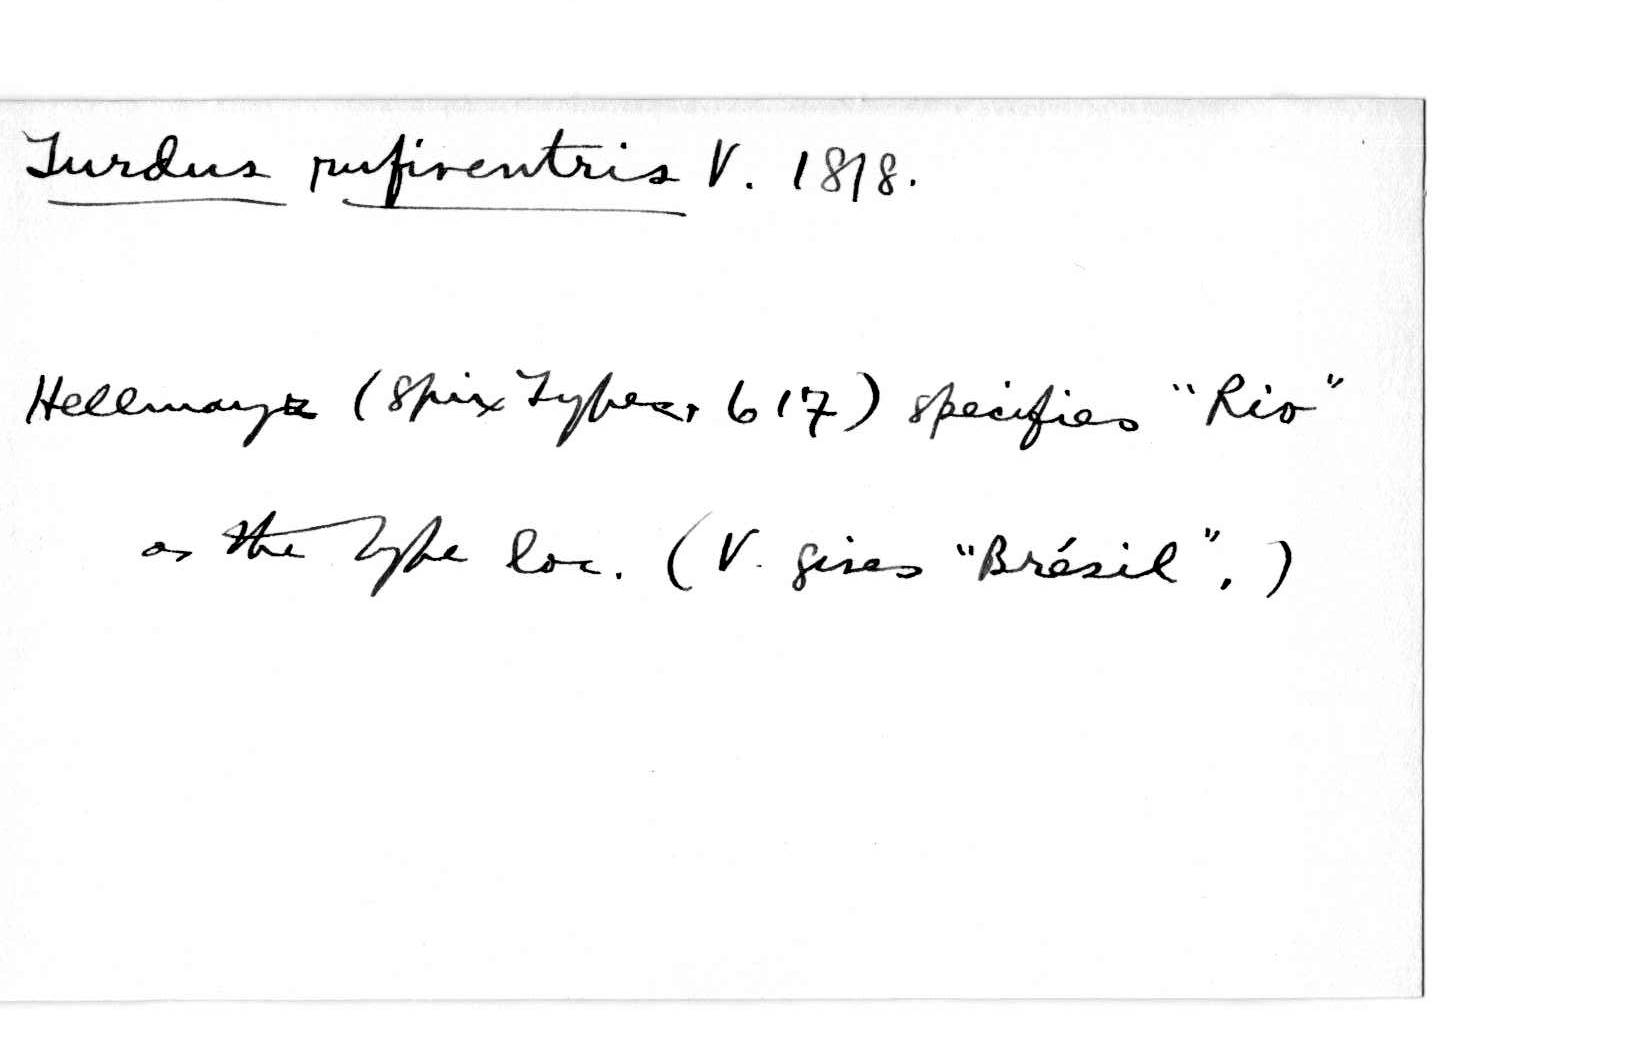 Turdus rufiventris V. 1818.
Hellmayr (Spix Types, 617) specifies "Rio"
as the type loc. (V. gives "Brésil".)